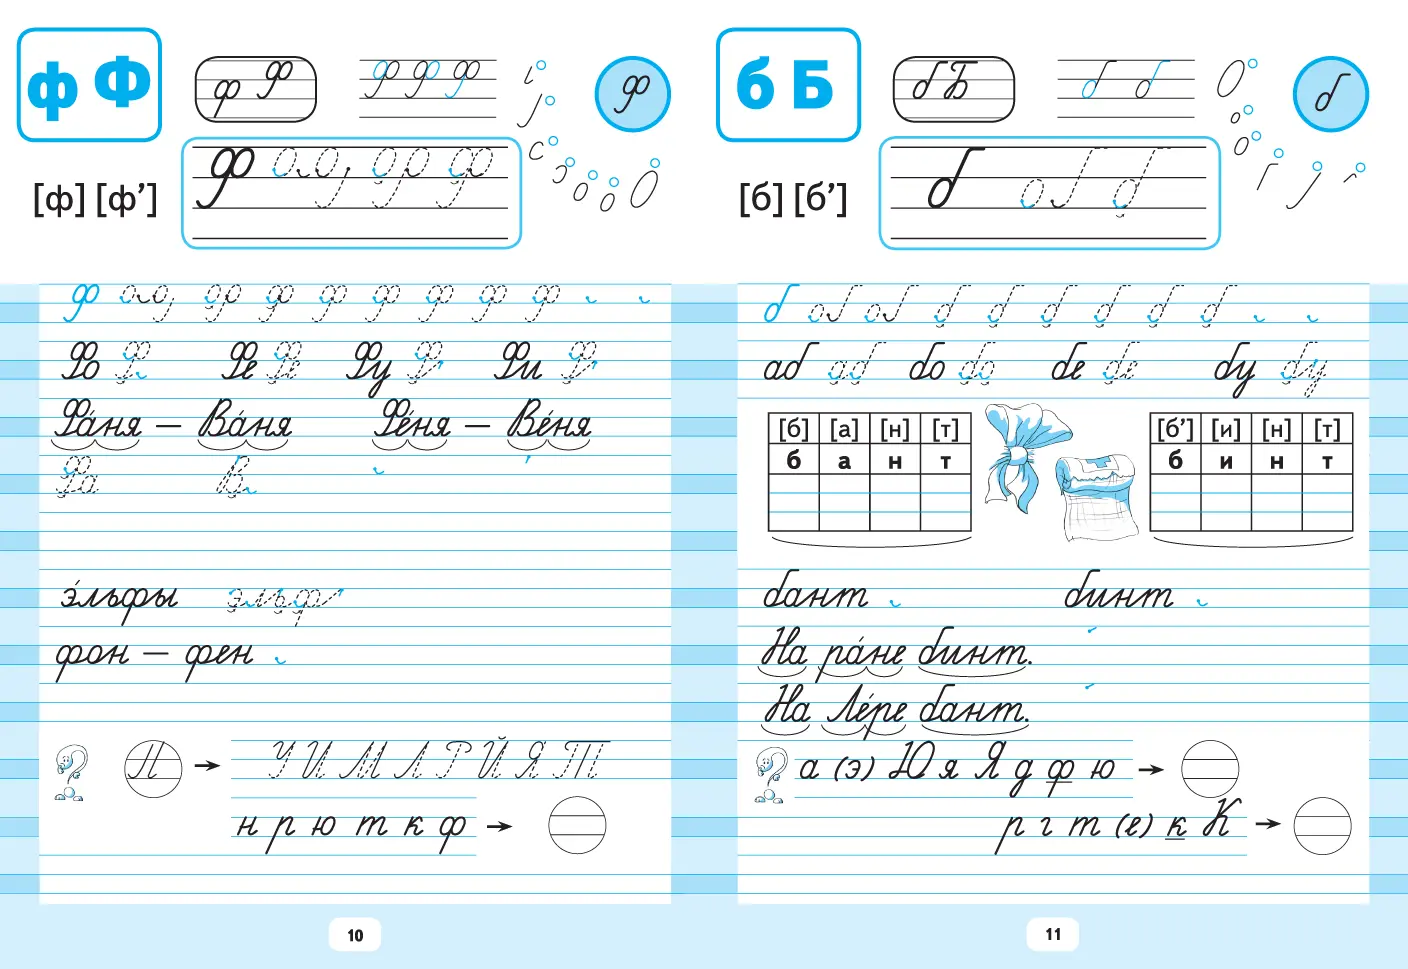 ф Ф
ф ф
ф ф ф
ф
[ф] [ф’]
ф
ф
Фо Фе Фу Фи
Фа́ня — Ва́ня Фе́ня — Ве́ня
Фа В
э́льфы эльф
фон — фен
Л → У И М Л Г Й Я П
н р ю т к ф →
10
б Б
б Б
б б
б
[б] [б’]
б
б
аб аб бо бо бе бе бу бу
[б] [а] [н] [т] [б’] [и] [н] [т]
б а н т б и н т
бант бинт
На ра́не бинт.
На Ле́ре бант.
а (э) Ю я Я д ф ю →
р г т (е) к К →
11